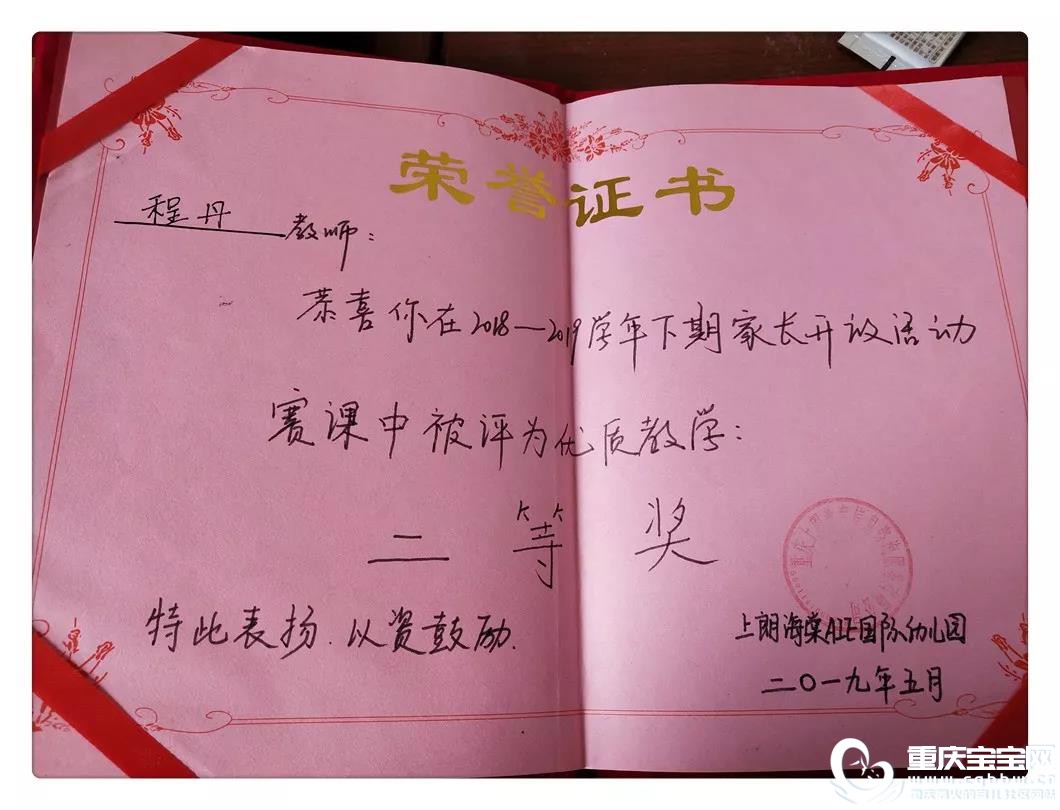 荣誉证书
程丹 教师：
恭喜你在2018—2019学年下期家长开放活动
赛课中被评为优质教学：
二等奖
特此表扬.以资鼓励.
上朗海棠ALE国际幼儿园
二〇一九年五月
重庆宝宝网
www.cqbbw.cn